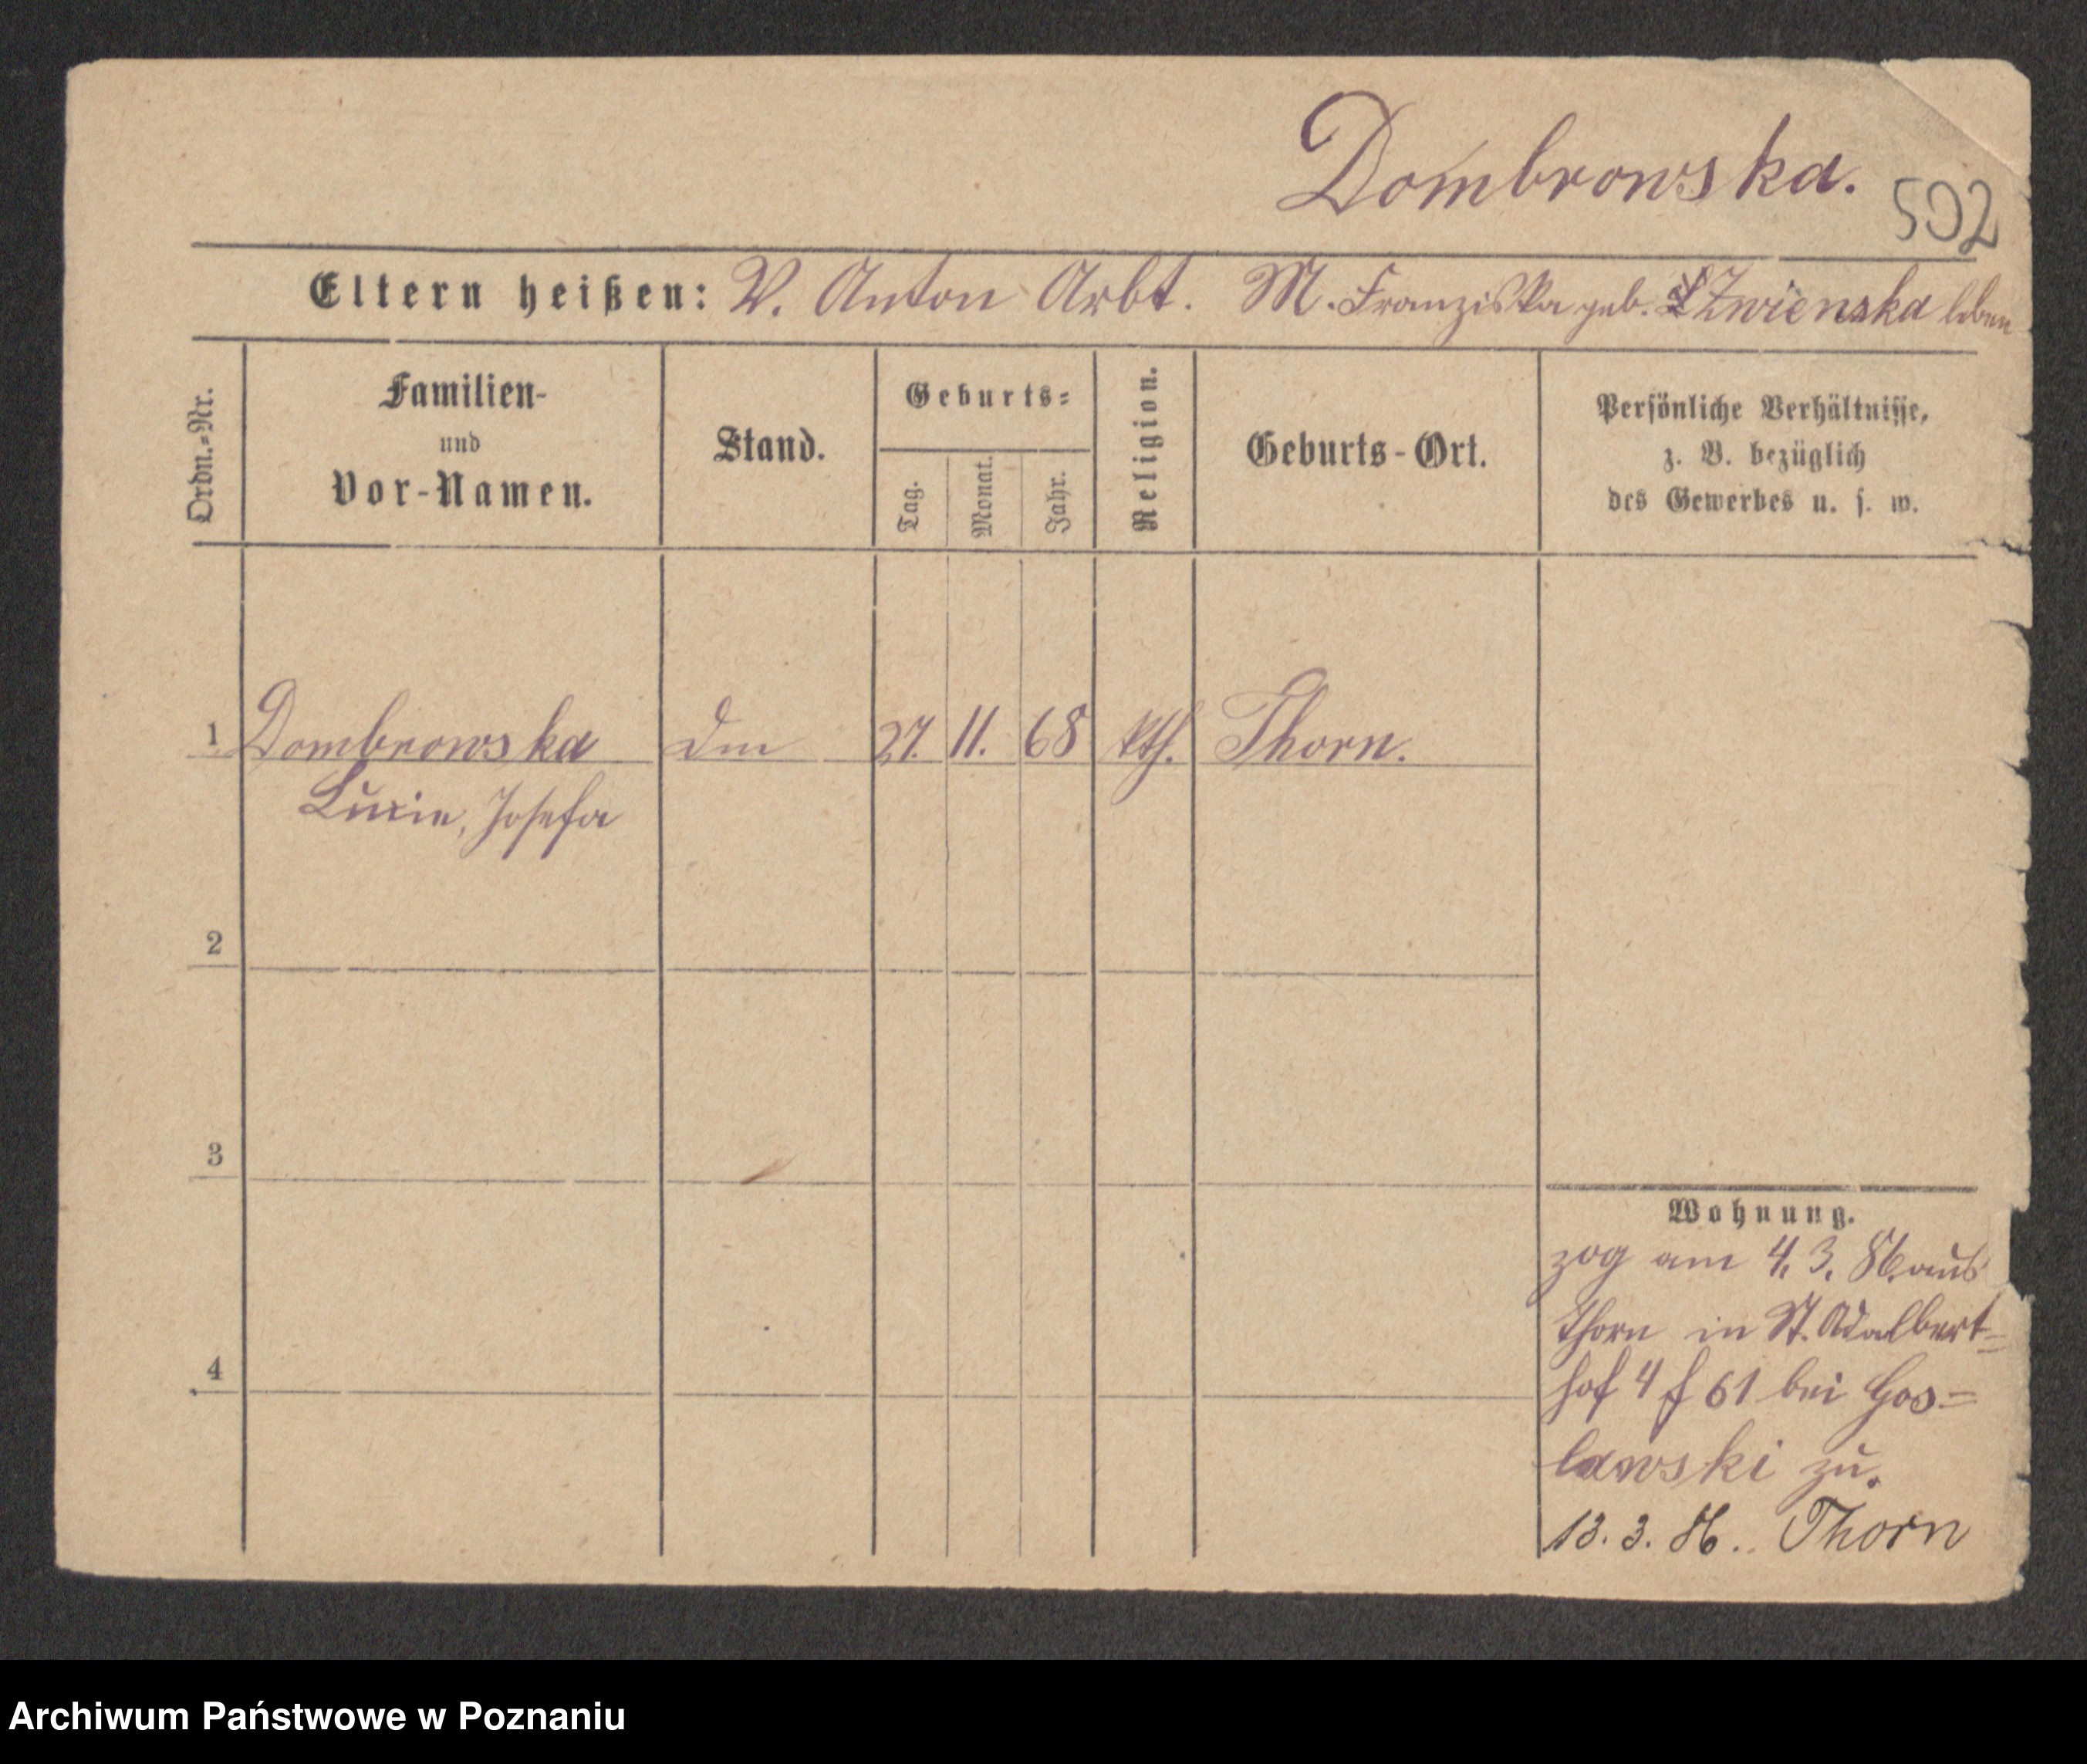 Dombrowska.
502
Eltern heißen: V. Anton Arbt. M. Franziska geb. Zwienska leben
Ordn.=Nr.
Familien-
und
Vor-Namen.
Stand.
Geburts=
Tag.
Monat.
Jahr.
Religion.
Geburts-Ort.
Persönliche Verhältnisse,
z. B. bezüglich
des Gewerbes u. s. w.
1 Dombrowska 27. 11. 68 kth. Thorn.
Luzie, Josefa
2
3
4
Wohnung.
zog am 4. 3. 86. aus
Thorn in St. Adalbert=
hof 4 f 61 bei Gos=
lawski zu.
13. 3. 86. Thorn
Archiwum Państwowe w Poznaniu